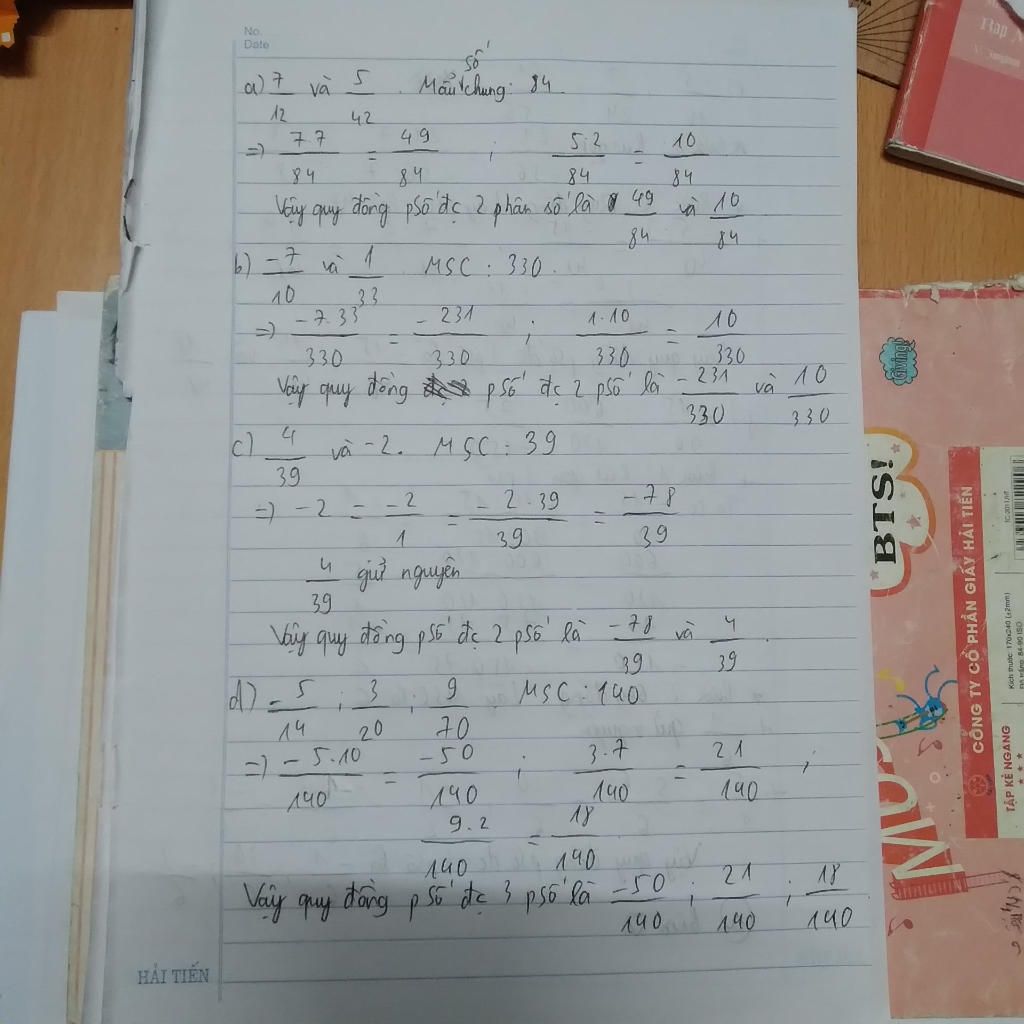 No.
Date
số
a) 7/12 và 5/42. Mẫu chung: 84.
=) 7.7/84 = 49/84 ; 5.2/84 = 10/84
Vậy quy đồng psố đc 2 phân số là 49/84 và 10/84
b) -7/10 và 1/33 MSC: 330.
=) -7.33/330 = -231/330 ; 1.10/330 = 10/330
Vậy quy đồng psố đc 2 psố là -231/330 và 10/330
c) 4/39 và -2. MSC: 39
=) -2 = -2/1 = -2.39/39 = -78/39
4/39 giữ nguyên
Vậy quy đồng psố đc 2 psố là -78/39 và 4/39.
d) -5/14 ; 3/20 ; 9/70 MSC: 140
=) -5.10/140 = -50/140 ; 3.7/140 = 21/140 ;
9.2/140 = 18/140
Vậy quy đồng psố đc 3 psố là -50/140 ; 21/140 ; 18/140
HẢI TIẾN
Giving!
BTS!
CÔNG TY CỔ PHẦN GIẤY HẢI TIẾN
TẬP KẺ NGANG
Kích thước: 170x240 (±2mm)